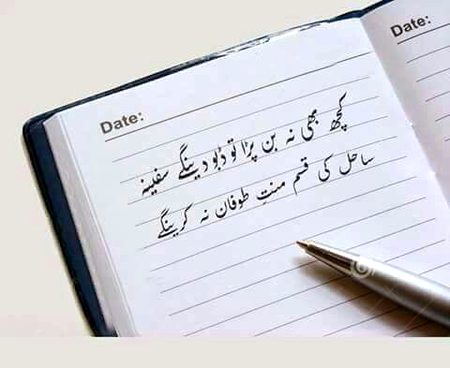 Date:
Date:
کچھ بھی نہ بن پڑا تو ڈبو دینگے سفینہ
ساحل کی قسم منتِ طوفان نہ کرینگے